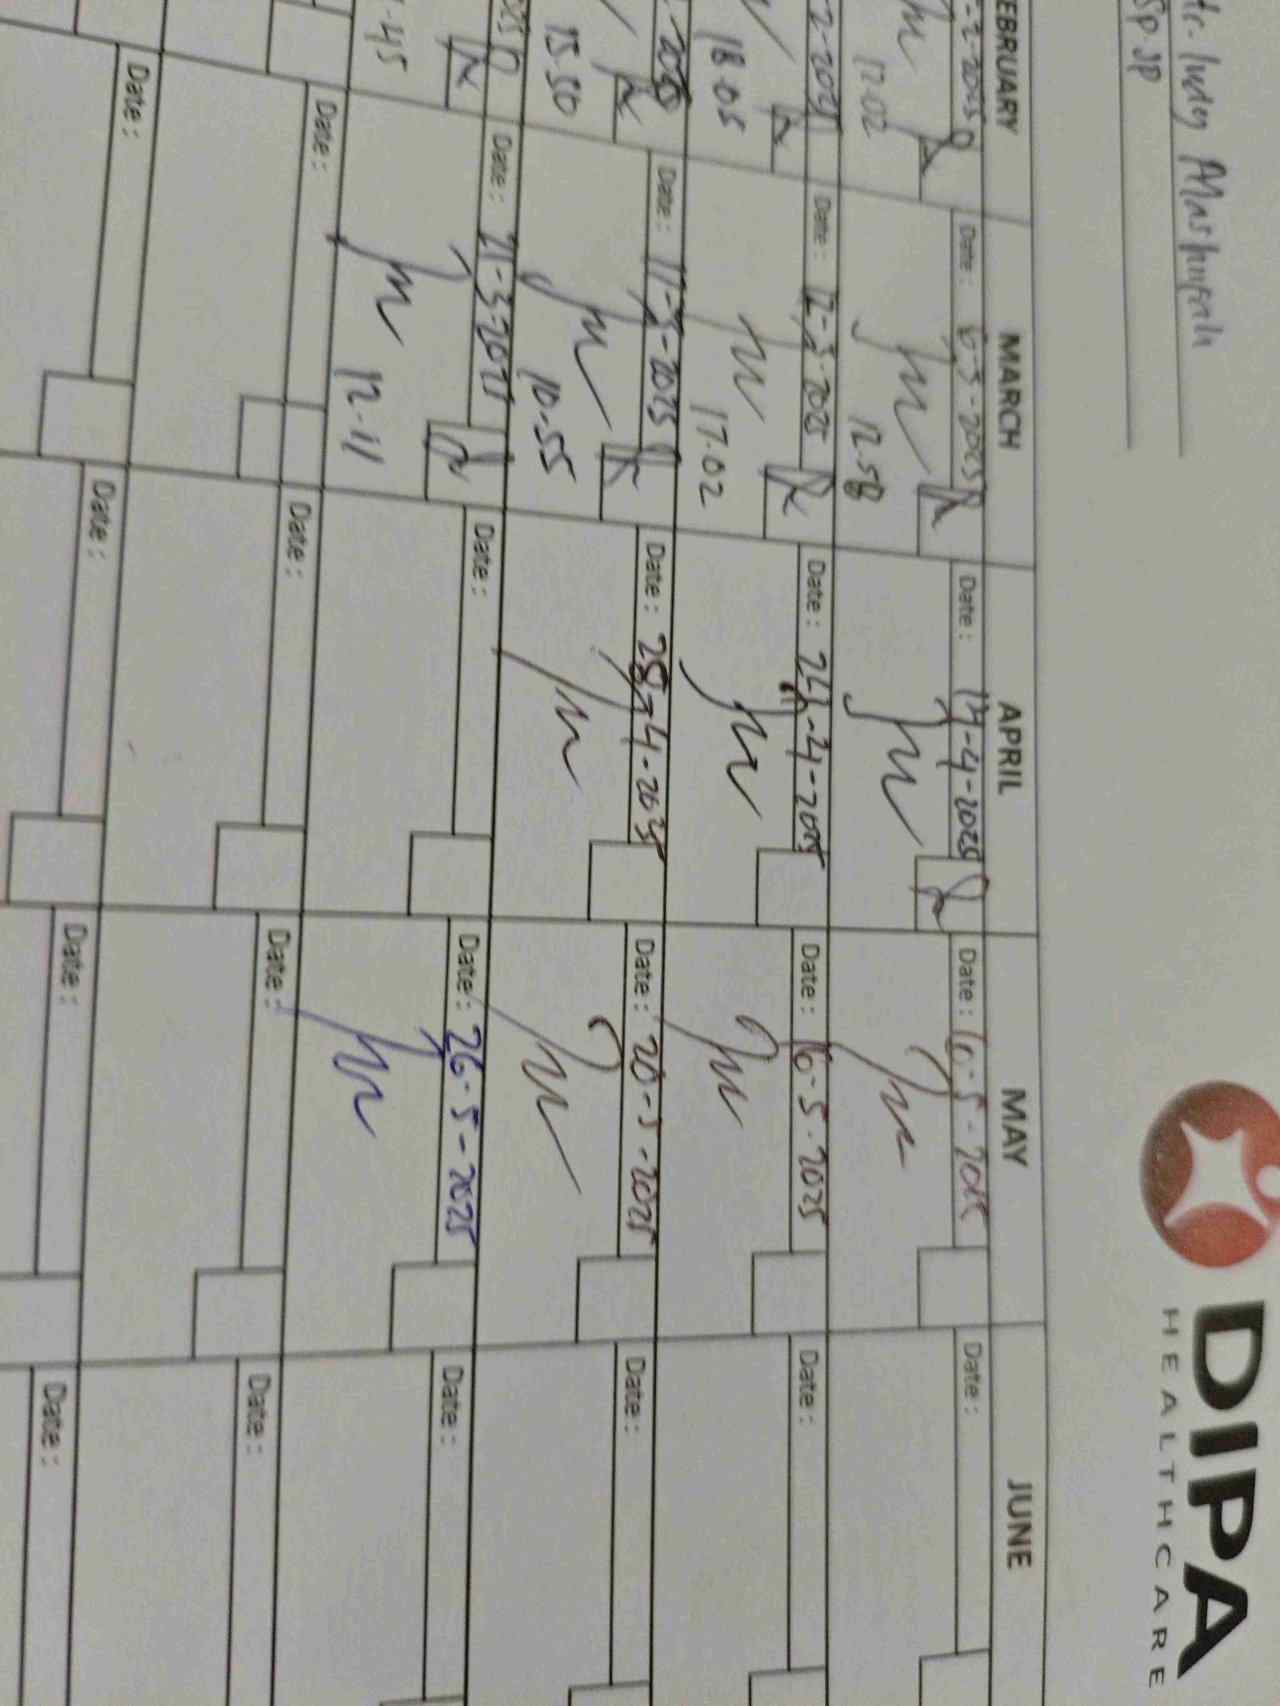 DIPA
HEALTHCARE
Sp.JP
EBRUARY MARCH APRIL MAY JUNE
Date: 6-3-2025 Date: 17-4-2025 Date: Date:
12.02 12.58
Date: 12-3-2025 Date: 24-4-2025 Date: 16-5-2025 Date:
18.05 17.02
Date: 17-3-2025 Date: 28-4-2025 Date: 20-5-2025 Date:
15.50 10.55
Date: 21-3-2025 Date: Date: 26-5-2025 Date:
.45 12.11
Date: Date: Date: Date:
Date: Date: Date: Date: